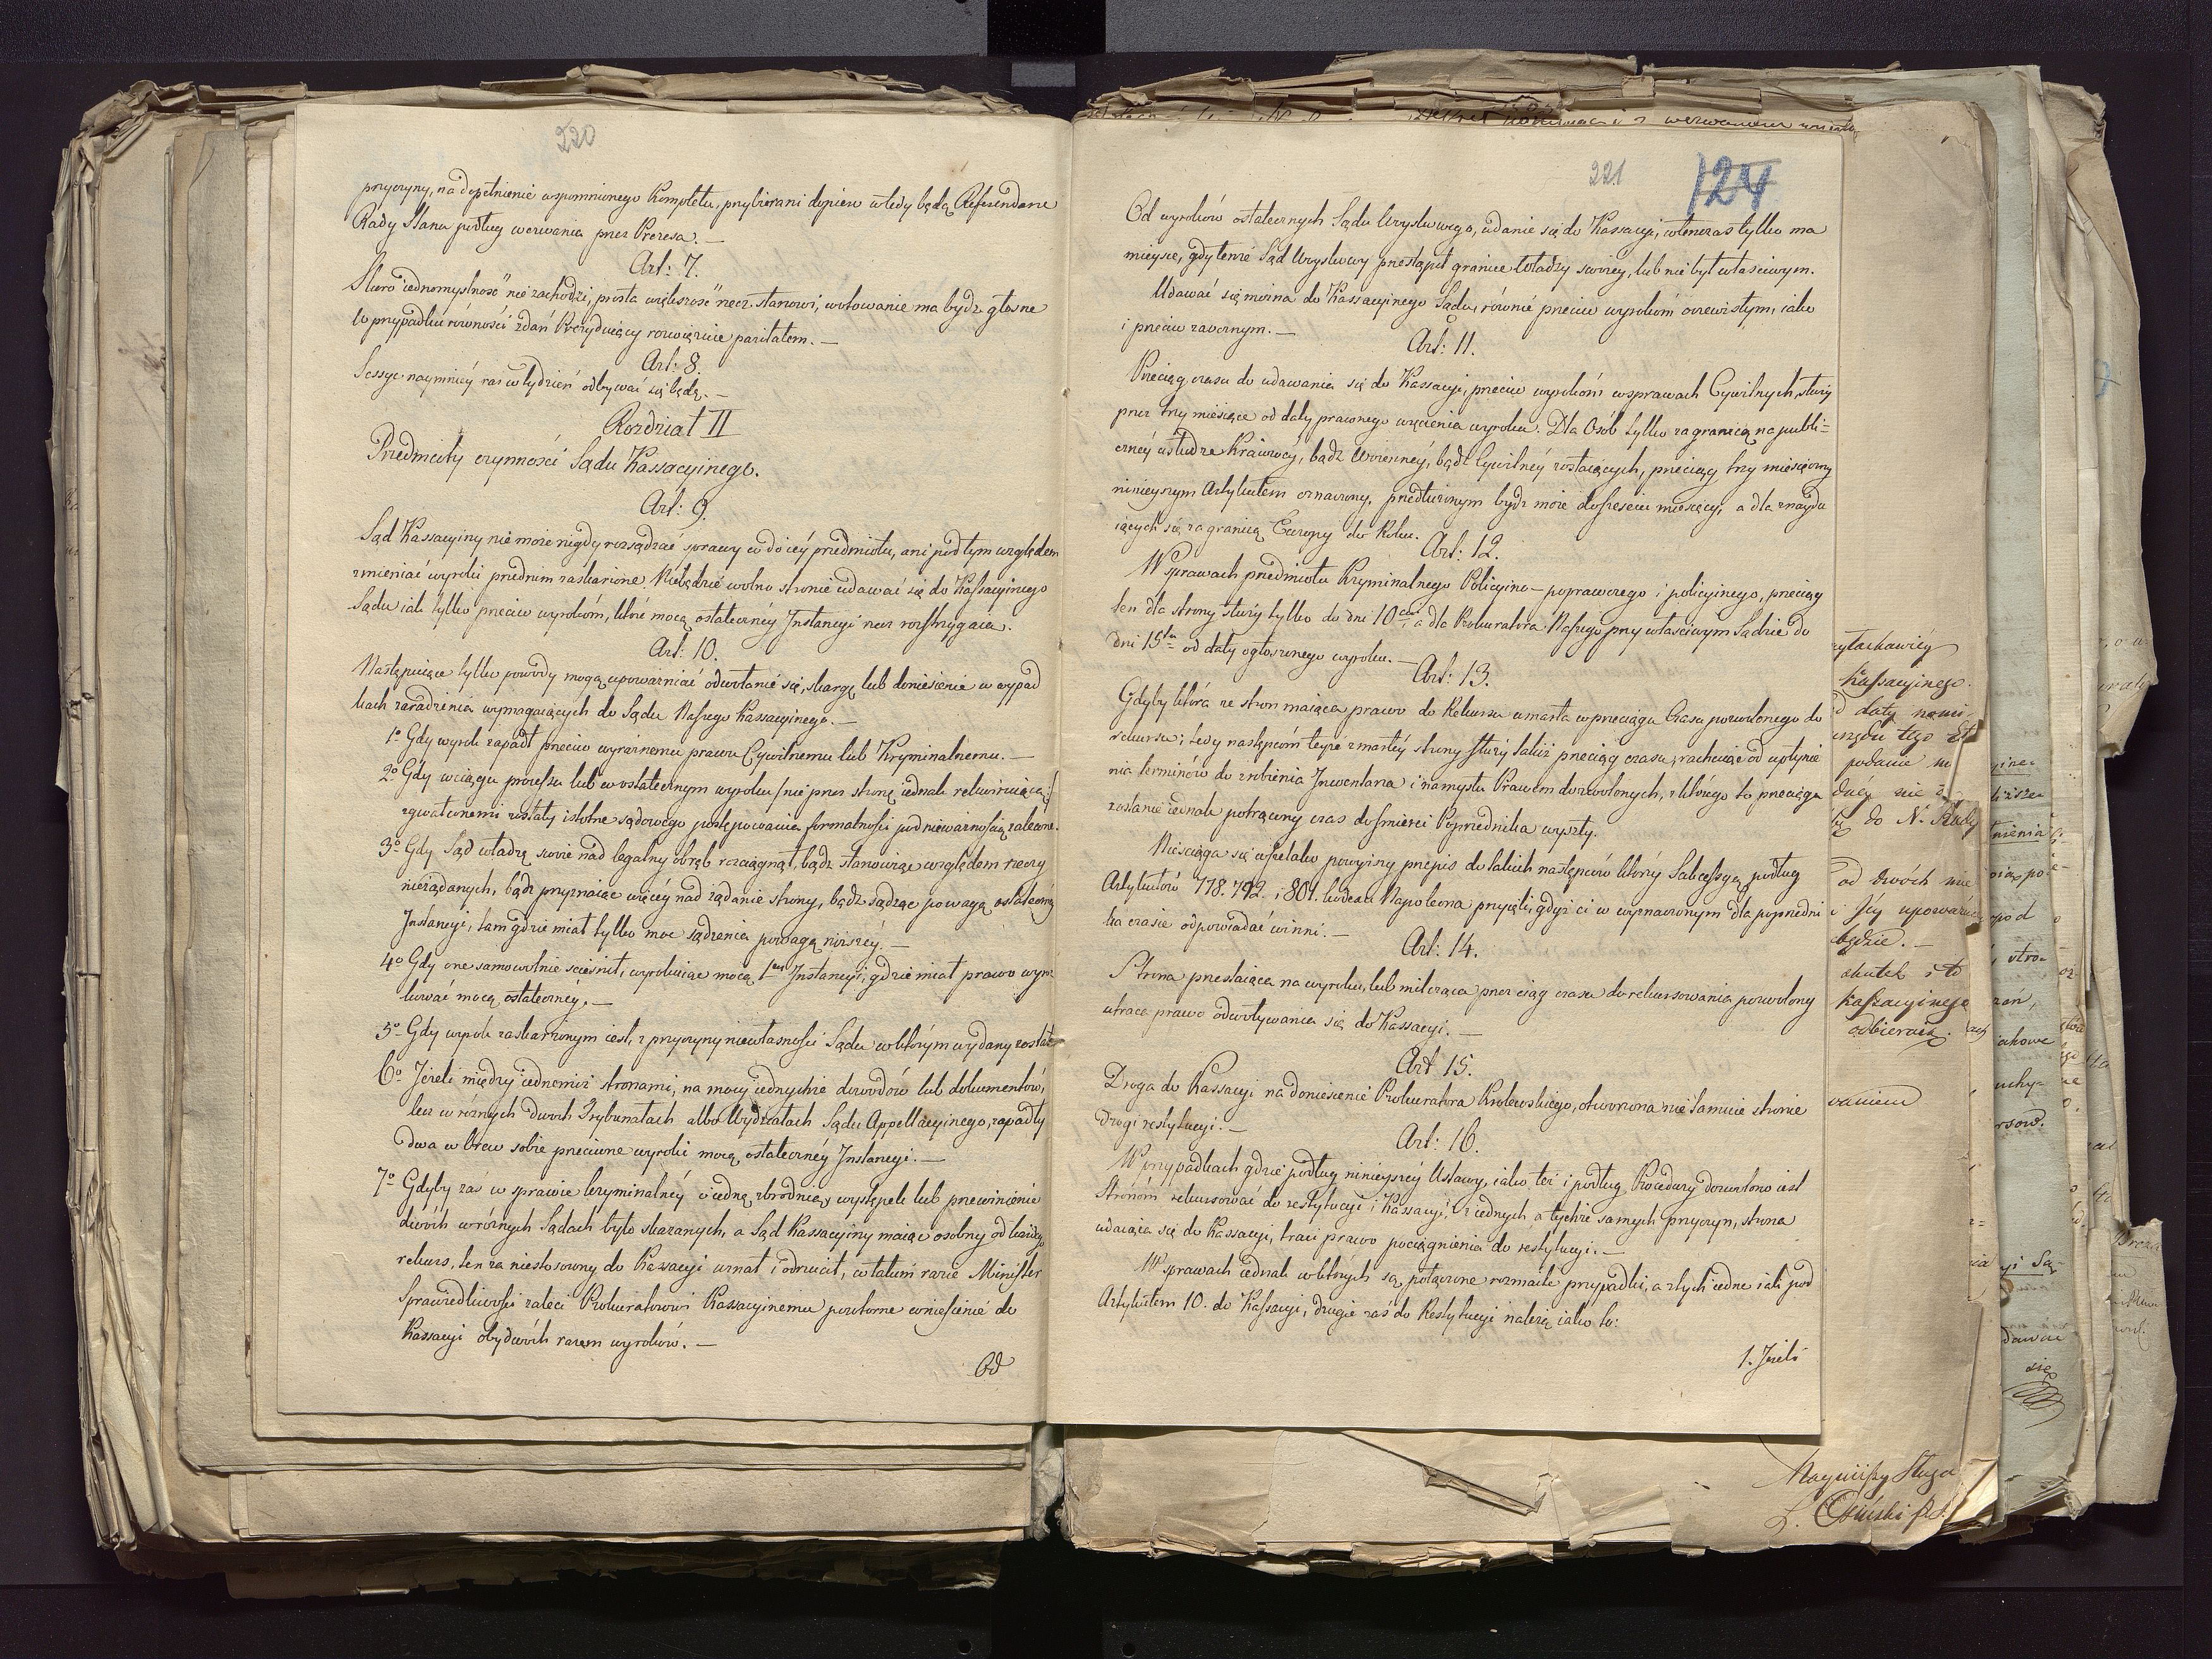 220
przyczyny, na dopełnienie wspomnionego Kompletu, przybierani dopiero wtedy będą Referendarze
Rady Stanu podług wezwania przez Prezesa. —
Art: 7.
Skoro iednomyslność nie zachodzi, prosta większość rzecz stanowi, wotowanie ma bydź głosne
w przypadku równości zdań Prezyduiący rozwięzuie paritatem. —
Art: 8.
Sessye naymniéy raz w tydzień odbywać się będą. —
Rozdział II
Przedmioty czynności Sądu Kassacyinego.
Art: 9.
Sąd Kassacyiny nie może nigdy rozsądzać sprawy w do iéy przedmiotu, ani pod tym względem
zmieniać wyroki przed nim zaskarżone Niebędzie wolno stronie udawać się do Kassacyinego
Sądu iak tylko przeciw wyrokóm, które mocą ostatecznéy Instancyi rzecz rozstrzygaią.
Art: 10.
Następuiące tylko powody mogą upoważniać odwołanie się, skargę lub doniesienie w wypad
kach zaradzenia wymagaiących do Sądu Naszego Kassacyinego. —
1o Gdy wyrok zapadł przeciw wyraźnemu prawu Cywilnemu lub Kryminalnemu. —
2o Gdy w ciągu processu lub w ostatecznym wyroku /nie przez stronę iednak rekuruiącą/
zgwałconemi zostały istotne sądowego postępowania formalności pod nieważnością zalecone.
3o Gdy Sąd władzę swoie nad legalny obręb rozciągnął, bądź stanowiąc względem rzeczy
nieżądanych, bądź przyznaiąc więcéy nad żądanie strony, bądź sądząc powagą ostatecznéy
Instancyi, tam gdzie miał tylko moc sądzenia powagą niższéy. —
4o Gdy one samowolnie scieśnił, wyrokuiąc mocą 1ey Instancyi, gdzie miał prawo wyro
kować mocą ostatecznéy. —
5o Gdy wyrok zaskarżonym iest, z przyczyny niewłasności Sądu w którym wydany został
6o Jeżeli między iednemiż stronami, na mocy iednychże dowodów lub dokumentów,
lecz w różnych dwóch Trybunałach albo Wydziałach Sądu Appellacyinego, zapadły
dwa w brew sobie przeciwne wyroki mocą ostatecznéy Instancyi. —
7o Gdyby zaś w sprawie kryminalnéy o iedną zbrodnię, występek lub przewinienie
dwóch w różnych Sądach było skazanych, a Sąd Kassacyiny maiąc osobny od każdego
rekurs, ten za niestosowny do Kassacyi uznał i odrzucił, w takim razie Minister
Sprawiedliwości zaleci Prokuratorowi Kassacyinemu powtórne wniesienie do
Kassacyi obydwóch razem wyroków. —
Od
221
124
Od wyroków ostatecznych Sądu Wrysluwego, udanie się do Kassacyi, wtenczas tylko ma
mieysce, gdy tenże Sąd przestąpił granice władzy swoiéy, lub nie był właściwym.
Udawać się można do Kassacyinego Sądu, równie przeciw wyrokóm oczewistym, iako
i przeciw zaocznym. —
Art: 11.
Przeciąg czasu do udawania się do Kassacyi, przeciw wyrokóm w sprawach Cywilnych, służy
przez trzy miesiące od daty prawnego wręczenia wyroku. Dla Osób tylko za granicą na publi=
cznéy usłudze Kraiowéy, bądź Woienney, bądź Cywilnéy zostaiących, przeciąg trzy miesięczny
ninieyszym Artykułem oznaczony, przedłużonym bydź może do sześciu miesięcy, a dla znaydu
iących się za granicą Europy do Roku.
Art: 12.
W sprawach przedmiotu Kryminalnego Policyino-poprawczego i policyinego, przeciąg
ten dla strony służy tylko do dni 10ciu, a dla Prokuratora Naszego przy właściwym Sądzie do
dni 15tu od daty ogłoszonego wyroku. —
Art: 13.
Gdyby która ze stron maiąca prawo do Rekursu umarła w przeciągu Czasu pozwolonego do
rekursu; tedy następcóm teyże zmarłéy strony służy takiż przeciąg czasu, rachuiąc od upłynie
nia terminów do zrobienia Inwentarza i namysłu Prawem dozwolonych, z którego to przeciągu
zostanie iednak potrącony czas do śmierci Poprzednika wyszły.
Nieściąga się wszelako powyższy przepis do takich następców którzy Sukcessyą podług
Artykułów 778. 792. i 801. kodexu Napoleona przyięli, gdyż ci w wyznaczonym dla poprzedni
ka czasie odpowiadać winni. —
Art: 14.
Strona przestaiąca na wyroku, lub milcząca przez ciąg czasu do rekursowania pozwolony
utraca prawo odwoływania się do Kassacyi. —
Art 15.
Droga do Kassacyi na doniesienie Prokuratora Królewskiego, otworzona nie tamuie stronie
drogi restytucyi. —
Art: 16.
W przypadkach gdzie podług ninieyszéy Ustawy, iako też i podług Procedury dozwolono iest
Stronóm rekursować do restytucyi i Kassacyi, z iednych a tychże samych przyczyn, strona
udaiąca się do Kassacyi, traci prawo pociągnienia do restytucyi. —
W sprawach iednak w których są połączone rozmaite przypadki, a z tych iedne iak pod
Artykułem 10. do Kassacyi, drugie zaś do Restytucyi należą iako to:
1. Jeżeli
Kassacyinego.
daty
tego
podanie
do N. Rady
od dwóch
Jéy
będzie. —
skutek i to
Kassacyinego
odbierać.
Nayniższy Sługa
L. Osiński